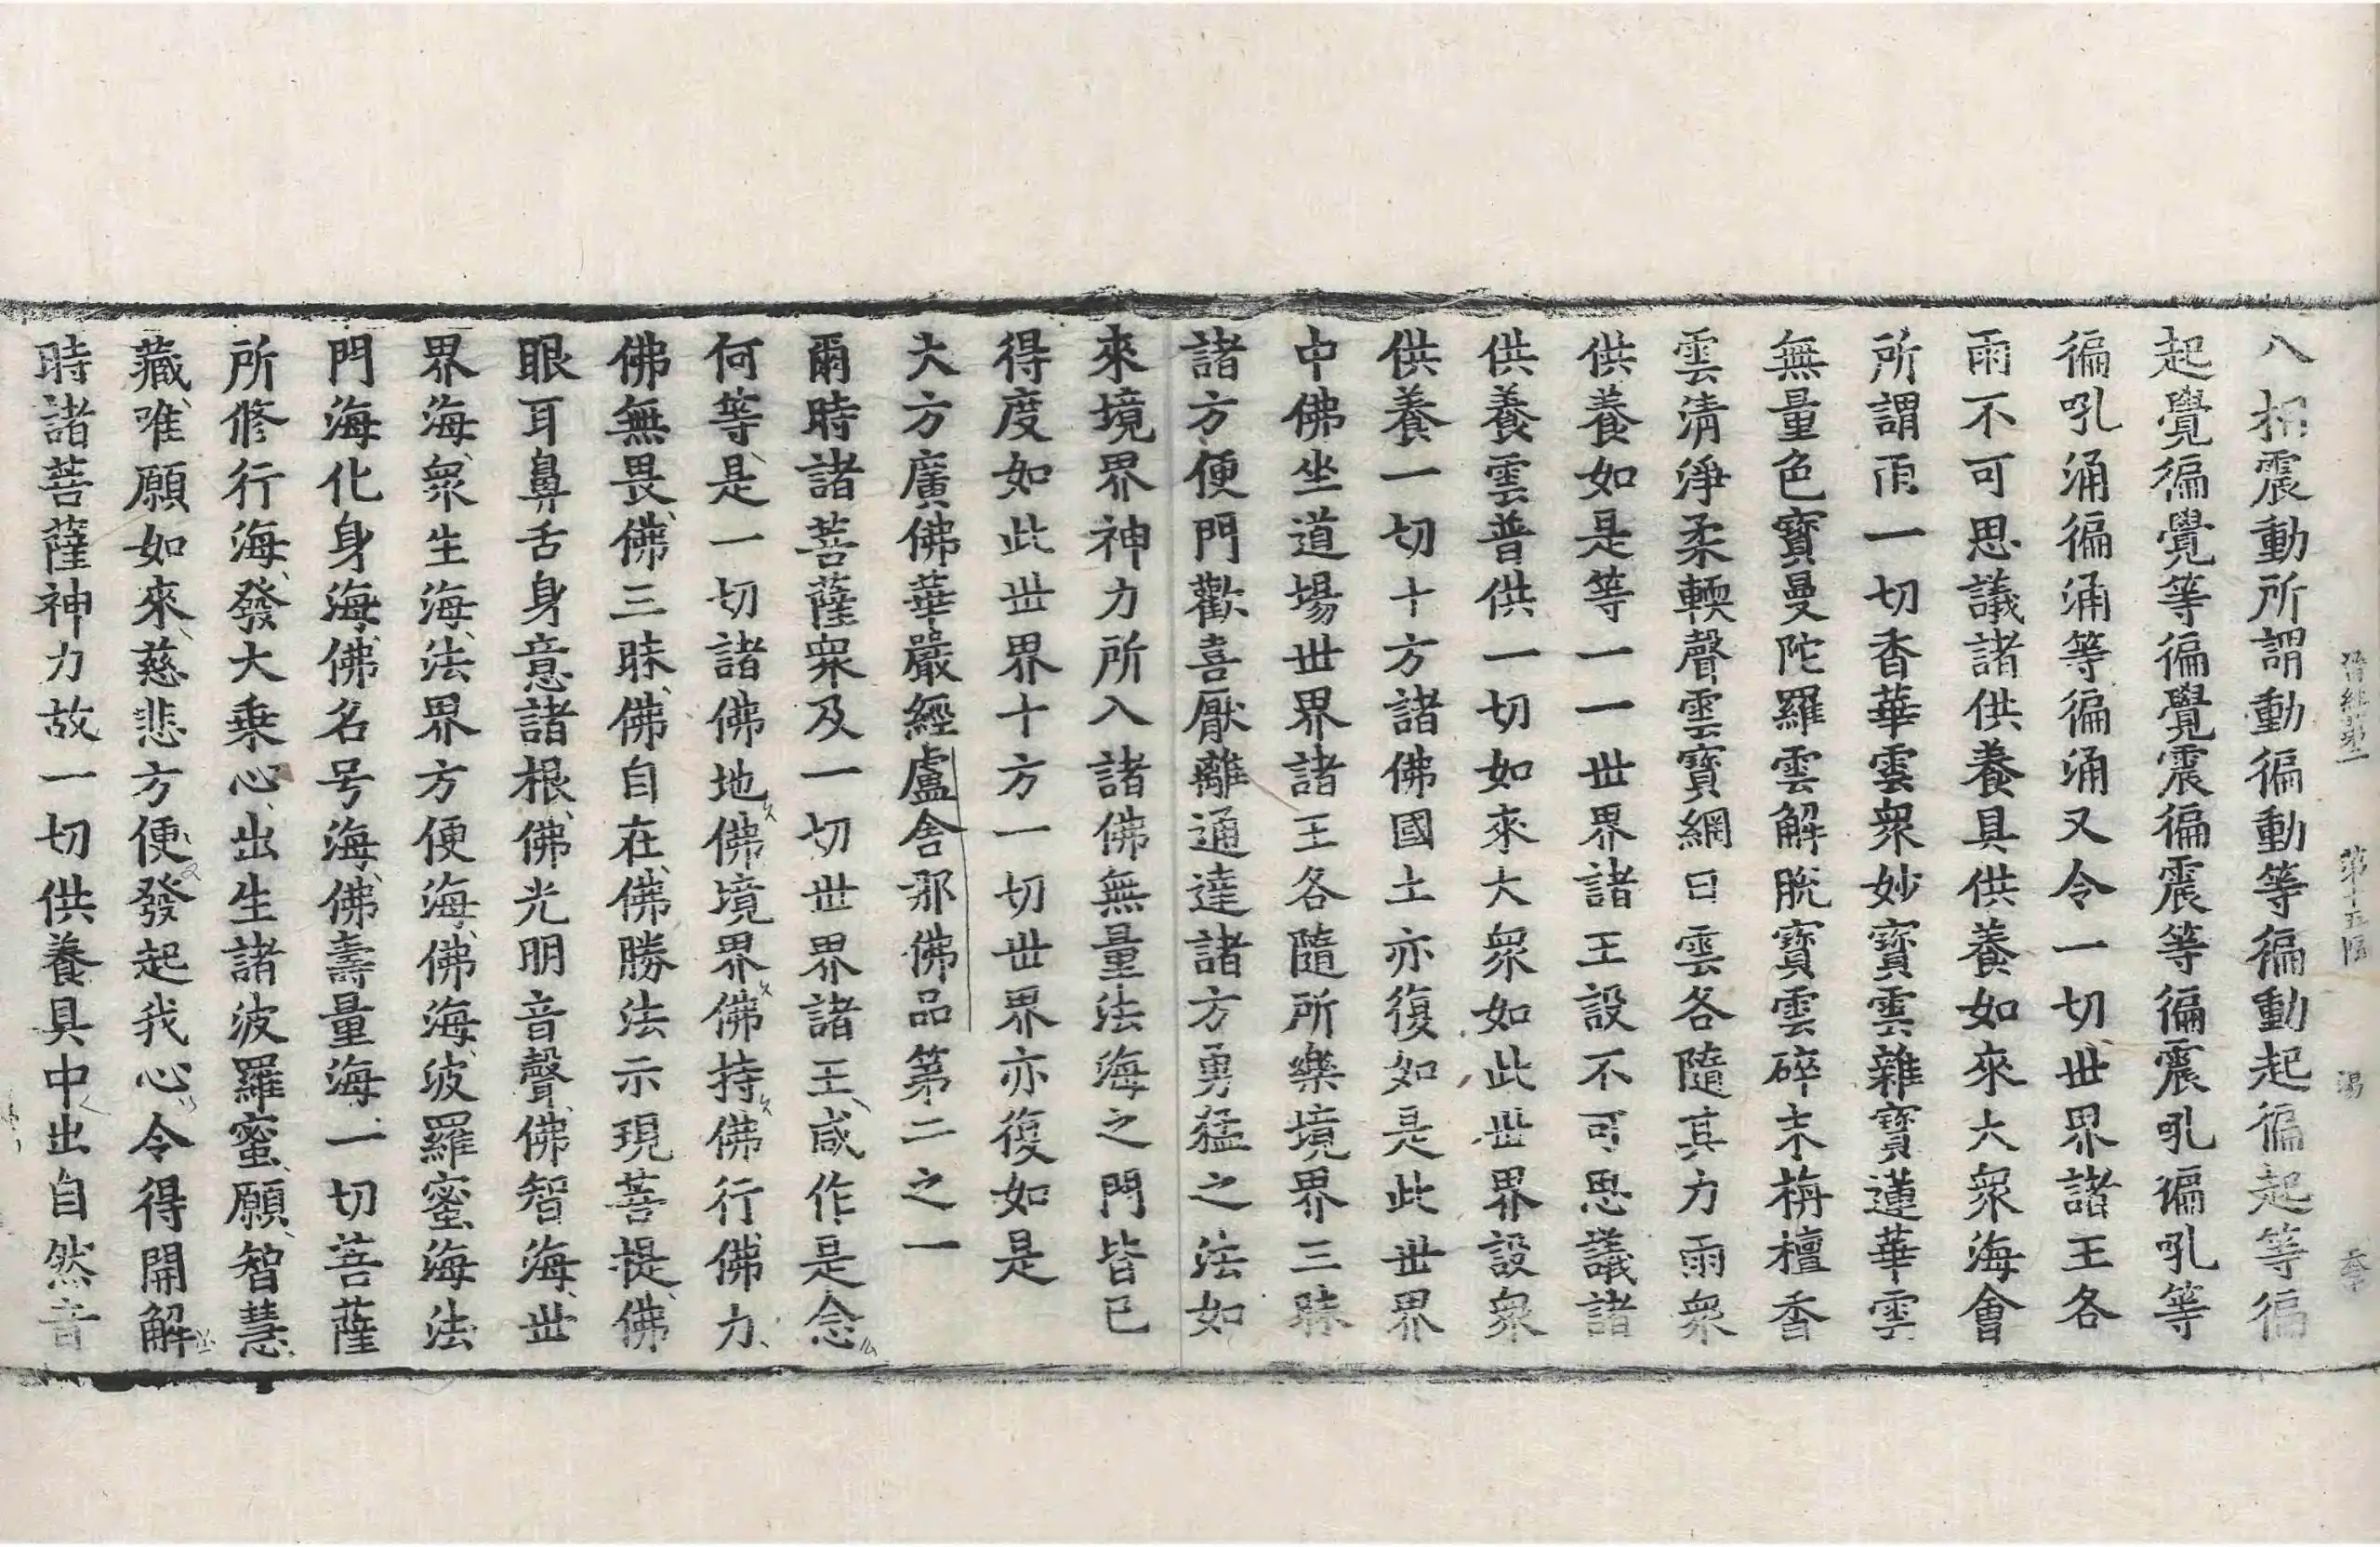 晉經第二 第十五張 湯 
八相震動所謂動徧動等徧動起徧起等徧
起覺徧覺等徧覺震徧震等徧震吼徧吼等
徧吼涌徧涌等徧涌又令一切世界諸王各
雨不可思議諸供養具供養如來大衆海會
所謂雨一切香華雲衆妙寶雲雜寶蓮華雲
無量色寶曼陀羅雲解脫寶雲碎末栴檀香
雲清淨柔輭聲雲寶網日雲各隨其力雨衆
供養如是等一一世界諸王設不可思議諸
供養雲普供一切如來大衆如此世界設衆
供養一切十方諸佛國土亦復如是此世界
中佛坐道場世界諸王各隨所樂境界三昧
諸方便門歡喜厭離通達諸方勇猛之法如
來境界神力所入諸佛無量法海之門皆已
得度如此世界十方一切世界亦復如是
大方廣佛華嚴經盧舍那佛品第二之一
爾時諸菩薩衆及一切世界諸王咸作是念
何等是一切諸佛地佛境界佛持佛行佛力
佛無畏佛三昧佛自在佛勝法示現菩提佛
眼耳鼻舌身意諸根佛光明音聲佛智海世
界海衆生海法界方便海佛海波羅蜜海法
門海化身海佛名号海佛壽量海一切菩薩
所修行海發大乘心出生諸波羅蜜願智慧
藏唯願如來慈悲方便發起我心令得開解
時諸菩薩神力故一切供養具中出自然音